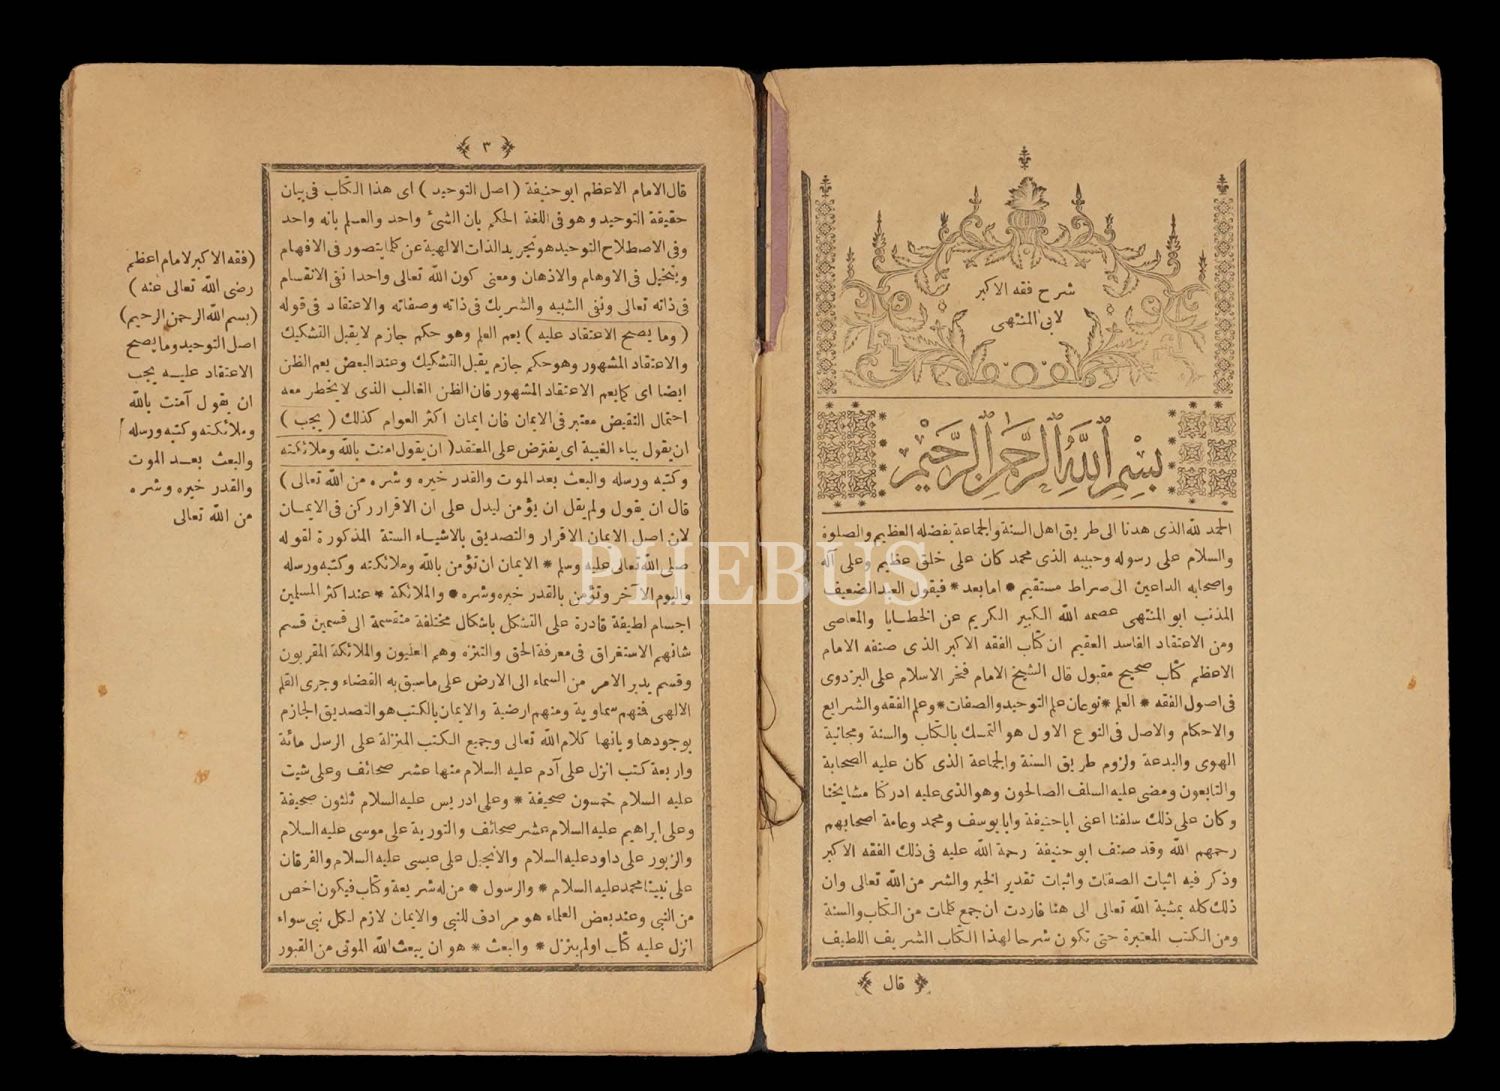 شرح فقه الاكبر
لابى المنتهى
بسم الله الرحمن الرحيم
الحمد لله الذى هدنا الى طريق اهل السنة والجماعة بفضله العظيم والصلوة
والسلام على رسوله وحبيبه الذى محمد كان على خلق عظيم وعلى آله
واصحابه الداعين الى صراط مستقيم * اما بعد * فيقول العبد الضعيف
المذنب ابو المنتهى عصمه الله الكبير الكريم عن الخطايا والمعاصى
ومن الاعتقاد الفاسد العقيم ان كتاب الفقه الاكبر الذى صنفه الامام
الاعظم كتاب صحيح مقبول قال الشيخ الامام فخر الاسلام على البزدوى
فى اصول الفقه * العلم * نوعان علم التوحيد والصفات * وعلم الفقه والشرايع
والاحكام والاصل فى النوع الاول هو التمسك بالكتاب والسنة ومجانبة
الهوى والبدعة ولزوم طريق السنة والجماعة الذى كان عليه الصحابة
والتابعون ومضى عليه السلف الصالحون وهو الذى عليه ادركنا مشايخنا
وكان على ذلك سلفنا اعنى اباحنيفة وابا يوسف ومحمد وعامة اصحابهم
رحمهم الله وقد صنف ابو حنيفة رحمة الله عليه فى ذلك الفقه الاكبر
وذكر فيه اثبات الصفات واثبات تقدير الخير والشر من الله تعالى وان
ذلك كله بمشية الله تعالى الى هنا فاردت ان جمع كلمات من الكتاب والسنة
ومن الكتب المعتبرة حتى تكون شرحا لهذا الكتاب الشريف اللطيف
قال
٣
قال الامام الاعظم ابو حنيفة ( اصل التوحيد ) اى هذا الكتاب فى بيان
حقيقة التوحيد وهو فى اللغة الحكم بان الشىء واحد والعلم بانه واحد
وفى الاصطلاح التوحيد هو تجريد الذات الالهية عن كلما يتصور فى الافهام
ويتخيل فى الاوهام والاذهان ومعنى كون الله تعالى واحدا نفى الانقسام
فى ذاته تعالى ونفى الشبيه والشريك فى ذاته وصفاته والاعتقاد فى قوله
( وما يصح الاعتقاد عليه ) يعم العلم وهو حكم جازم لا يقبل التشكيك
والاعتقاد المشهور وهو حكم جازم يقبل التشكيك وعند البعض يعم الظن
ايضا اى كما يعم الاعتقاد المشهور فان الظن الغالب الذى لا يخطر معه
احتمال النقيض معتبر فى الايمان فان ايمان اكثر العوام كذلك ( يجب )
ان يقول بياء الغيبة اى يفترض على المعتقد ( ان يقول امنت بالله وملائكته
وكتبه ورسله والبعث بعد الموت والقدر خيره وشره من الله تعالى )
قال ان يقول ولم يقل ان يؤمن ليدل على ان الاقرار ركن فى الايمان
لان اصل الايمان الاقرار والتصديق بالاشياء الستة المذكورة لقوله
صلى الله تعالى عليه وسلم * الايمان ان تؤمن بالله وملائكته وكتبه ورسله
واليوم الآخر وتؤمن بالقدر خيره وشره * والملائكة * عند اكثر المسلمين
اجسام لطيفة قادرة على التشكل باشكال مختلفة منقسمة الى قسمين قسم
شانهم الاستغراق فى معرفة الحق والتنزه وهم العليون والملائكة المقربون
وقسم يدبر الامر من السماء الى الارض على ما سبق به القضاء وجرى القلم
الالهى فمنهم سماوية ومنهم ارضية والايمان بالكتب هو التصديق الجازم
بوجودها وبانها كلام الله تعالى وجميع الكتب المنزلة على الرسل مائة
واربعة كتب انزل على آدم عليه السلام منها عشر صحائف وعلى شيت
عليه السلام خمسون صحيفة * وعلى ادريس عليه السلام ثلثون صحيفة
وعلى ابراهيم عليه السلام عشر صحائف والتورية على موسى عليه السلام
والزبور على داود عليه السلام والانجيل على عيسى عليه السلام والفرقان
على نبينا محمد عليه السلام * والرسول * من له شريعة وكتاب فيكون اخص
من النبى وعند بعض العلماء هو مرادف للنبى والايمان لازم لكل نبى سواء
انزل عليه كتاب اولم ينزل * والبعث * هو ان يبعث الله الموتى من القبور
(فقه الاكبر لامام اعظم
رضى الله تعالى عنه )
(بسم الله الرحمن الرحيم)
اصل التوحيد وما يصح
الاعتقاد عليه يجب
ان يقول آمنت بالله
وملائكته وكتبه ورسله
والبعث بعد الموت
والقدر خيره وشره
من الله تعالى
PHEBUS